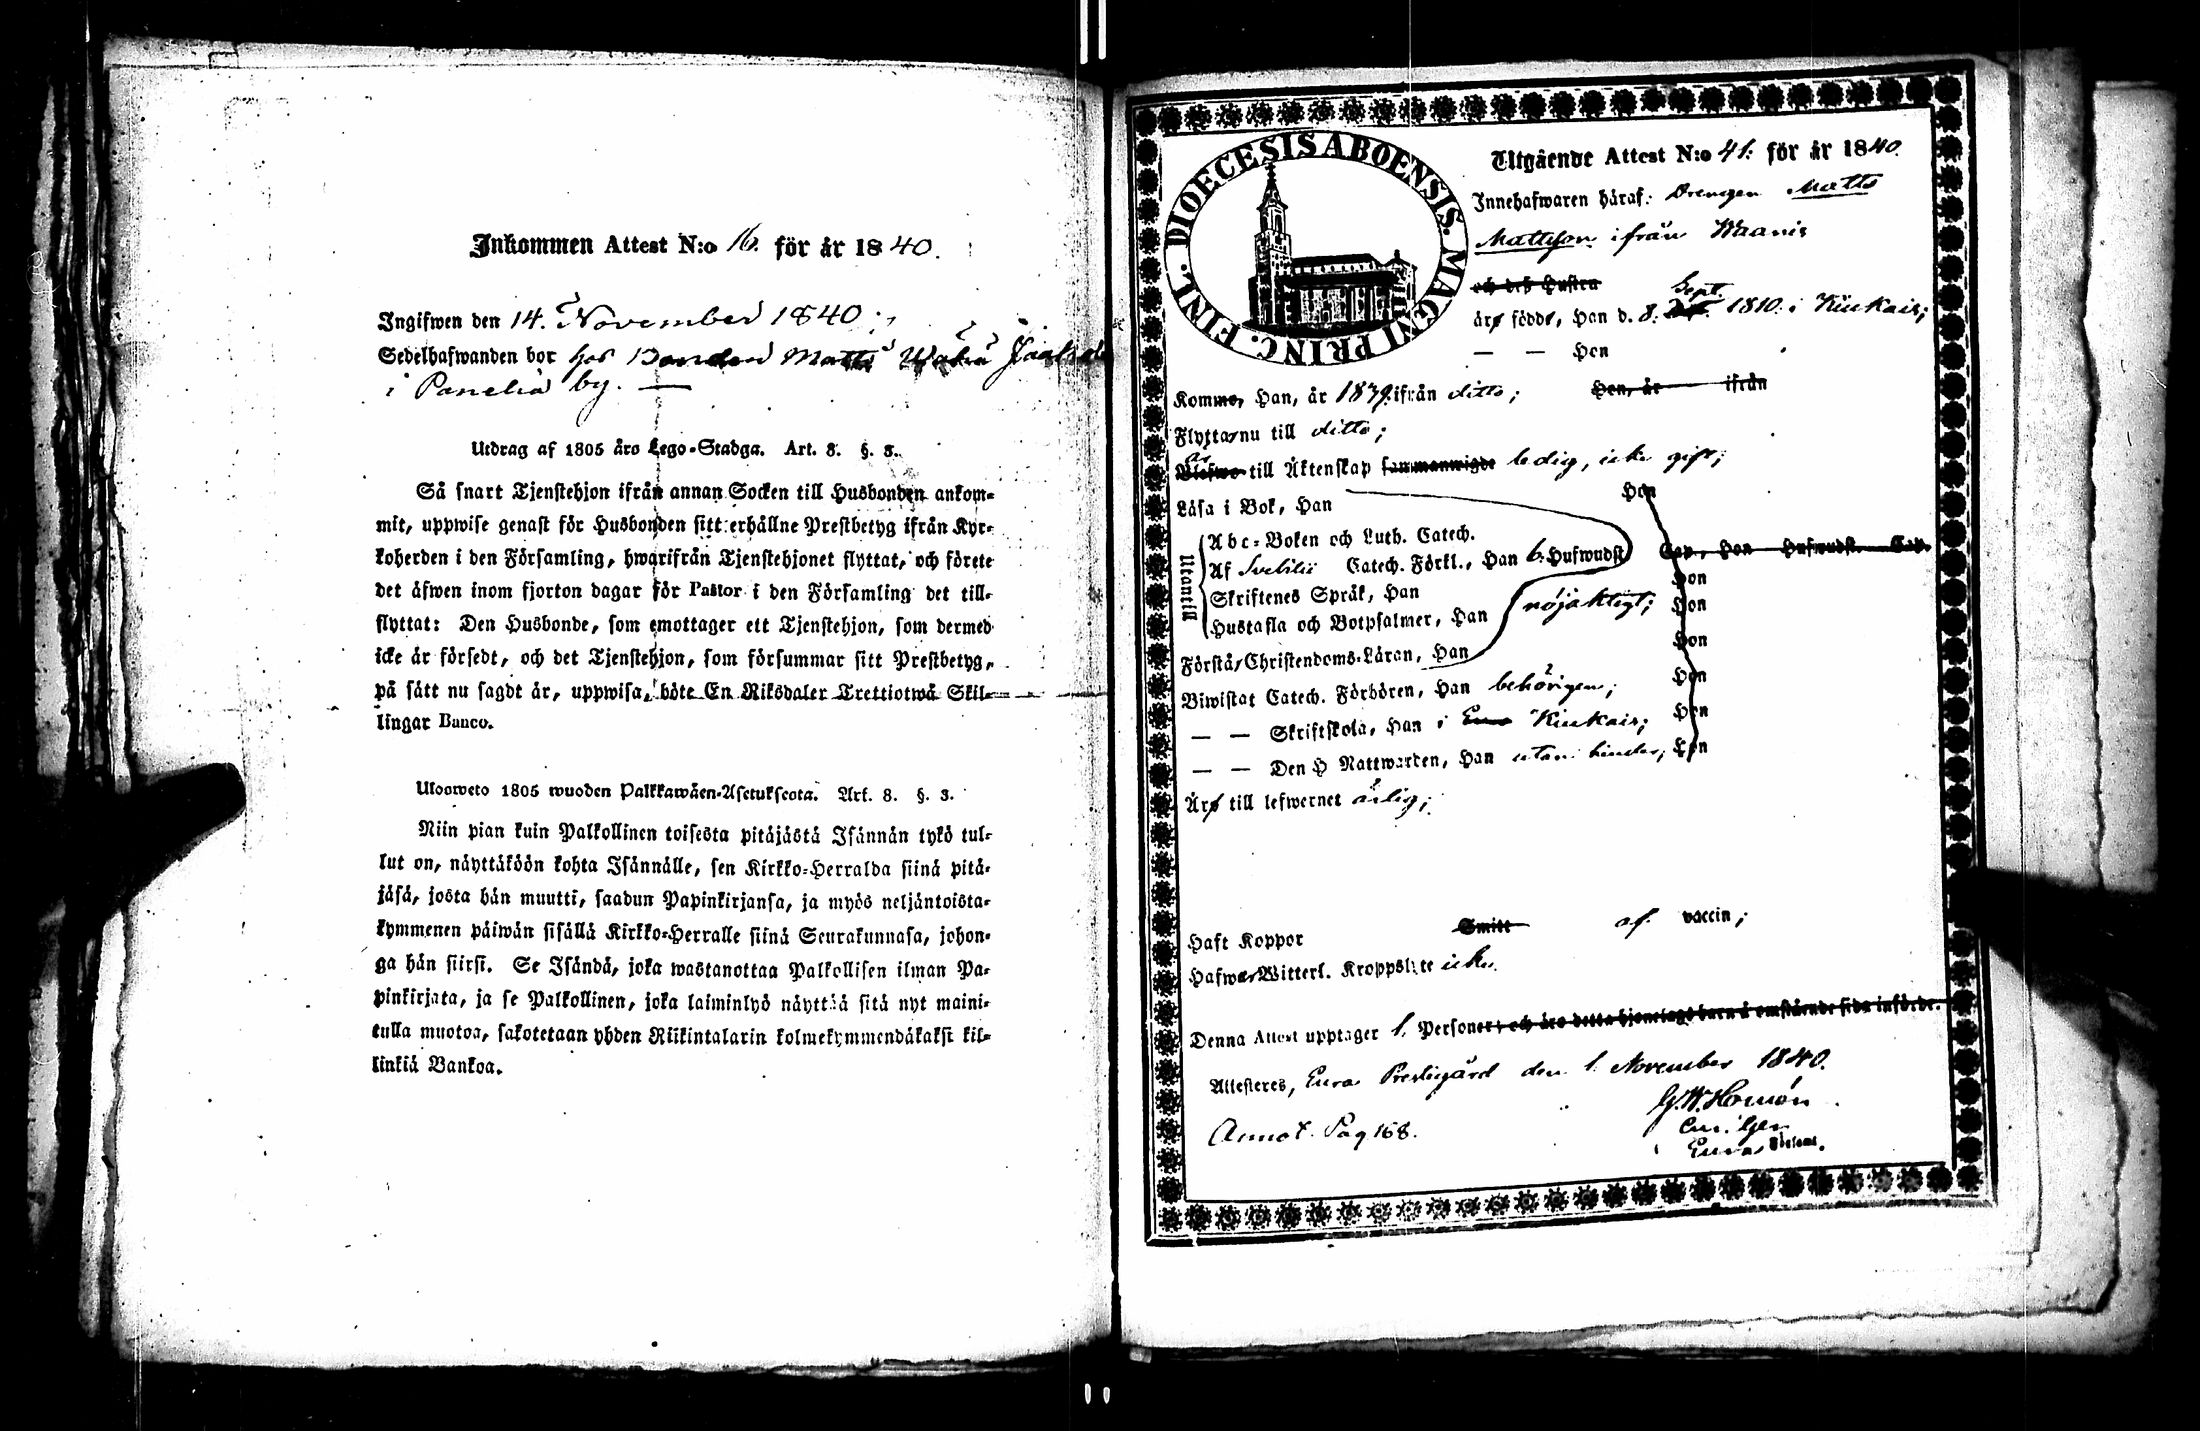 Inkommen Attest N:o 16. för år 1840.
Ingifwen den 14. November 1840;
Sedelhafwanden bor hos Bonden Matts Wähä
i Panelia by. —
Utdrag af 1805 års Lego-Stadga. Art. 8. §. 3.
Så snart Tjenstehjon ifrån annan Socken till Husbonden ankom-
mit, uppwise genast för Husbonden sitt erhållne Prestbetyg ifrån Kyr-
koherden i den Församling, hwarifrån Tjenstehjonet flyttat, och förete
det äfwen inom fjorton dagar för Pastor i den Församling det till-
flyttat: Den Husbonde, som emottager ett Tjenstehjon, som dermed
icke är försedt, och det Tjenstehjon, som försummar sitt Prestbetyg,
på sätt nu sagdt är, uppwisa, böte En Riksdaler Trettiotwå Skil-
lingar Banco.
Ulosweto 1805 wuoden Palkkawäen-Asetuksesta. Art. 8. §. 3.
Niin pian kuin Palkollinen toisesta pitäjästä Isännän tykö tul-
lut on, näyttäköön kohta Isännälle, sen Kirkko-Herralda siinä pitä-
jäsä, josta hän muutti, saadun Papinkirjansa, ja myös neljäntoista-
kymmenen päiwän sisällä Kirkko-Herralle siinä Seurakunnasa, johon-
ga hän siirsi. Se Isändä, joka wastanottaa Palkollisen ilman Pa-
pinkirjata, ja se Palkollinen, joka laiminlyö näyttää sitä nyt maini-
tulla muotoa, sakotetaan yhden Riikintalarin kolmekymmendäkaksi kil-
linkiä Bankoa.
DIOECESIS ABOENSIS. MAGNI PRINC. FINL.
Utgående Attest N:o 41. för år 1840.
Innehafwaren häraf: Drengen Matts
Mattsson ifrån Waanis
och dess Hustru
äro födde, Han d. 8. Sept. 1810. i Kiukais;
— — Hon
Komma, Han, år 1839. ifrån ditto; Hon, år ifrån
Flytta nu till ditto;
är
Blefwo till Äktenskap sammanwigde ledig, icke gift;
Läsa i Bok, Han Hon
Utantill
Abc-Boken och Luth. Catech.
Af Svebilii Catech. Förkl., Han 6. Hufwudst. Cap., Hon Hufwudst. Cap.
Skriftenes Språk, Han Hon
Hustafla och Botpsalmer, Han nöjaktigt; Hon
Förstå Christendoms-Läran, Han Hon
Biwistat Catech. Förhören, Han behörigen; Hon
— — Skriftskola, Han i Eura Kiukais; Hon
— — Den H Nattwarden, Han utan hinder; Hon
Äro till lefwernet ärlig;
Haft Koppor Smitt af vaccin;
Hafwa Witterl. Kroppslyte icke.
Denna Attest upptager 1. Personer, och äro detta hjonelags barn å omstående sida införde.
Attesteres, Eura Prestegård den 1. November 1840.
Annot. Pag 168.
Eura Församl.